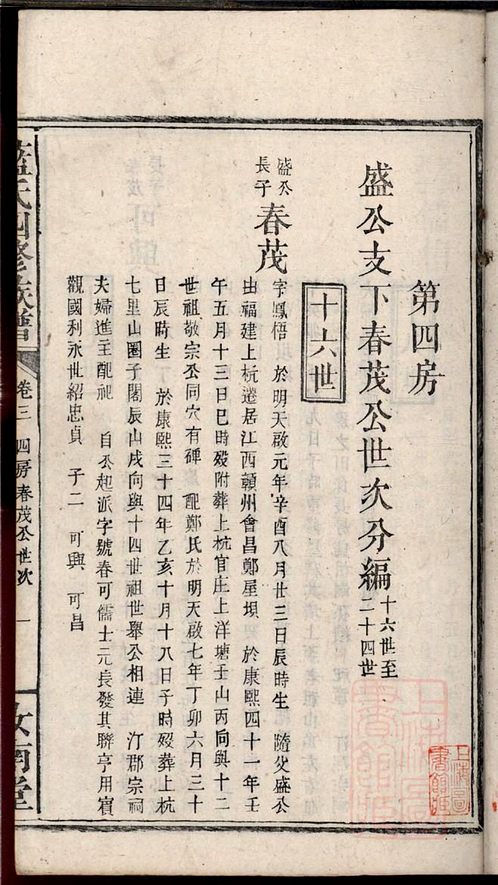 第四房
盛公支下春茂公世次分編 十六世至
二十四世
十六世
盛公
長子 春茂 字鳳悟 於明天啟元年辛酉八月廿三日辰時生 隨父盛公
由福建上杭遷居江西贛州會昌鄭屋壩 於康熙四十一年壬
午五月十三日巳時歿附葬上杭官庄上洋塘壬山丙向與十二
世祖敬宗公同穴有碑 配鄭氏於明天啟七年丁卯六月三十
日辰時生 於康熙三十四年乙亥十月十八日子時歿葬上杭
七里山圈子閣辰山戌向與十四世祖世舉公相連 汀郡宗祠
夫婦進主配祀 自公起派字號春可儒士元長發其聯亨用賓
觀國利永世紹忠貞 子二 可興 可昌
藍氏四修族譜 卷三 四房春茂公世次 一 汝南堂